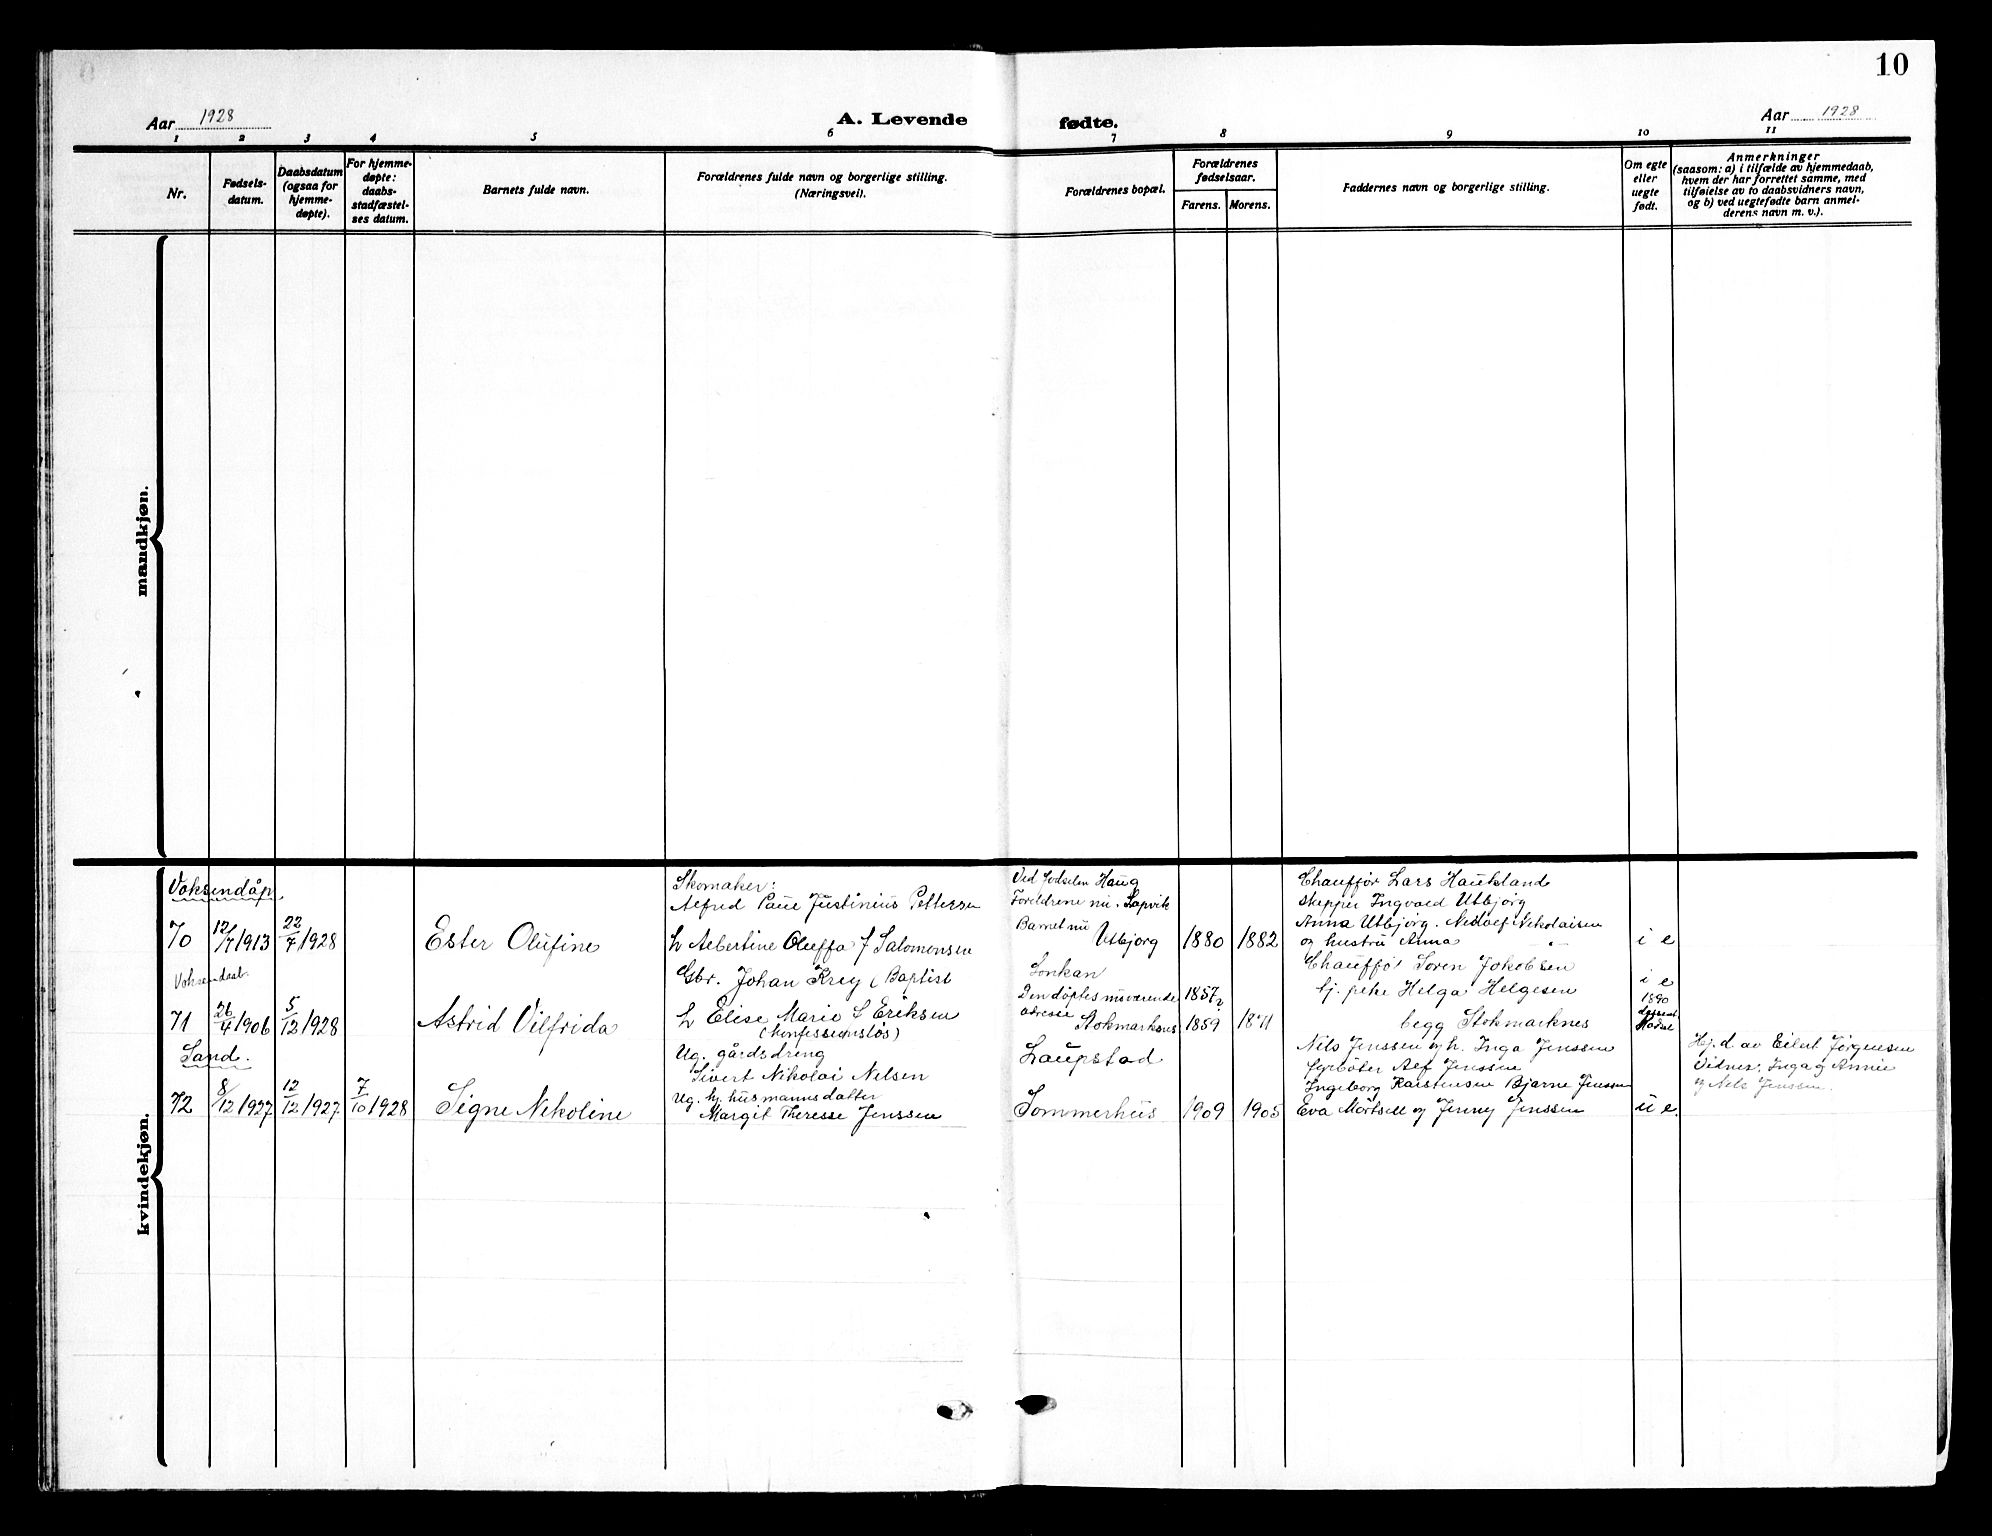 10
Aar 1928
A. Levende fødte.
Aar 1928
1 2 3 4 5 6 7 8 9 10 11
Nr.
Fødsels-
datum.
Daabsdatum
(ogsaa for
hjemme-
døpte).
For hjemme-
døpte:
daabs-
stadfæstel-
ses datum.
Barnets fulde navn.
Forældrenes fulde navn og borgerlige stilling.
(Næringsvei).
Forældrenes bopæl.
Forældrenes
fødselsaar.
Farens. Morens.
Faddernes navn og borgerlige stilling.
Om egte
eller
uegte
født.
Anmerkninger
(saasom: a) i tilfælde av hjemmedaab,
hvem der har forrettet samme, med
tilføielse av to daabsvidners navn,
og b) ved uegtefødte barn anmel-
derens navn m. v.).
mandkjøn.
kvindekjøn.
Voksendåp
70
12/7 1913
22/7 1928
Ester Olufine
Skomaker:
Alfred Paul Justinius Pettersen
h Albertine Oluffa f Salomonsen
Ved fødselen Haug
Foreldrene nu
Barnet nu
Utbjorg
1880
1882
Chauffør Lars Haukland
skipper Ingvald Utbjörg
Anna Utbjörg. Nikolaisen
og hustru Anna "
i e
Voksendaab
71
26/4 1906
5/12 1928
Astrid Vilfrida
Gbr. Johan Krey (Baptist
h Elise Marie f Eriksen
(Konfessionsløs)
Sonkan
Den døptes nuværende
adresse
Stokmarknes
1857?
1859
1871
Chauffør Soren Jakobsen
hj. pike Helga Helgesen
begg Stokmarknes
i e
1890
Hadsel
Sand.
72
8/12 1927
12/12 1927
7/10 1928
Signe Nikoline
Ug. gårdsdreng
Sivert Nikolai Nelsen
Ug. hj. husmannsdatter
Margit Therese Jenssen
Laupstad
Sommerhus
1909
1905
Nils Jenssen og h. Inga Jenssen
Alf Jenssen
Ingeborg Karstensen Bjarne Jenssen
Eva Mörtsell og Jenny Jenssen
u e.
Hj.d av Eilert Jørgensen
Vidner, Inga og Annie
og Nils Jenssen.